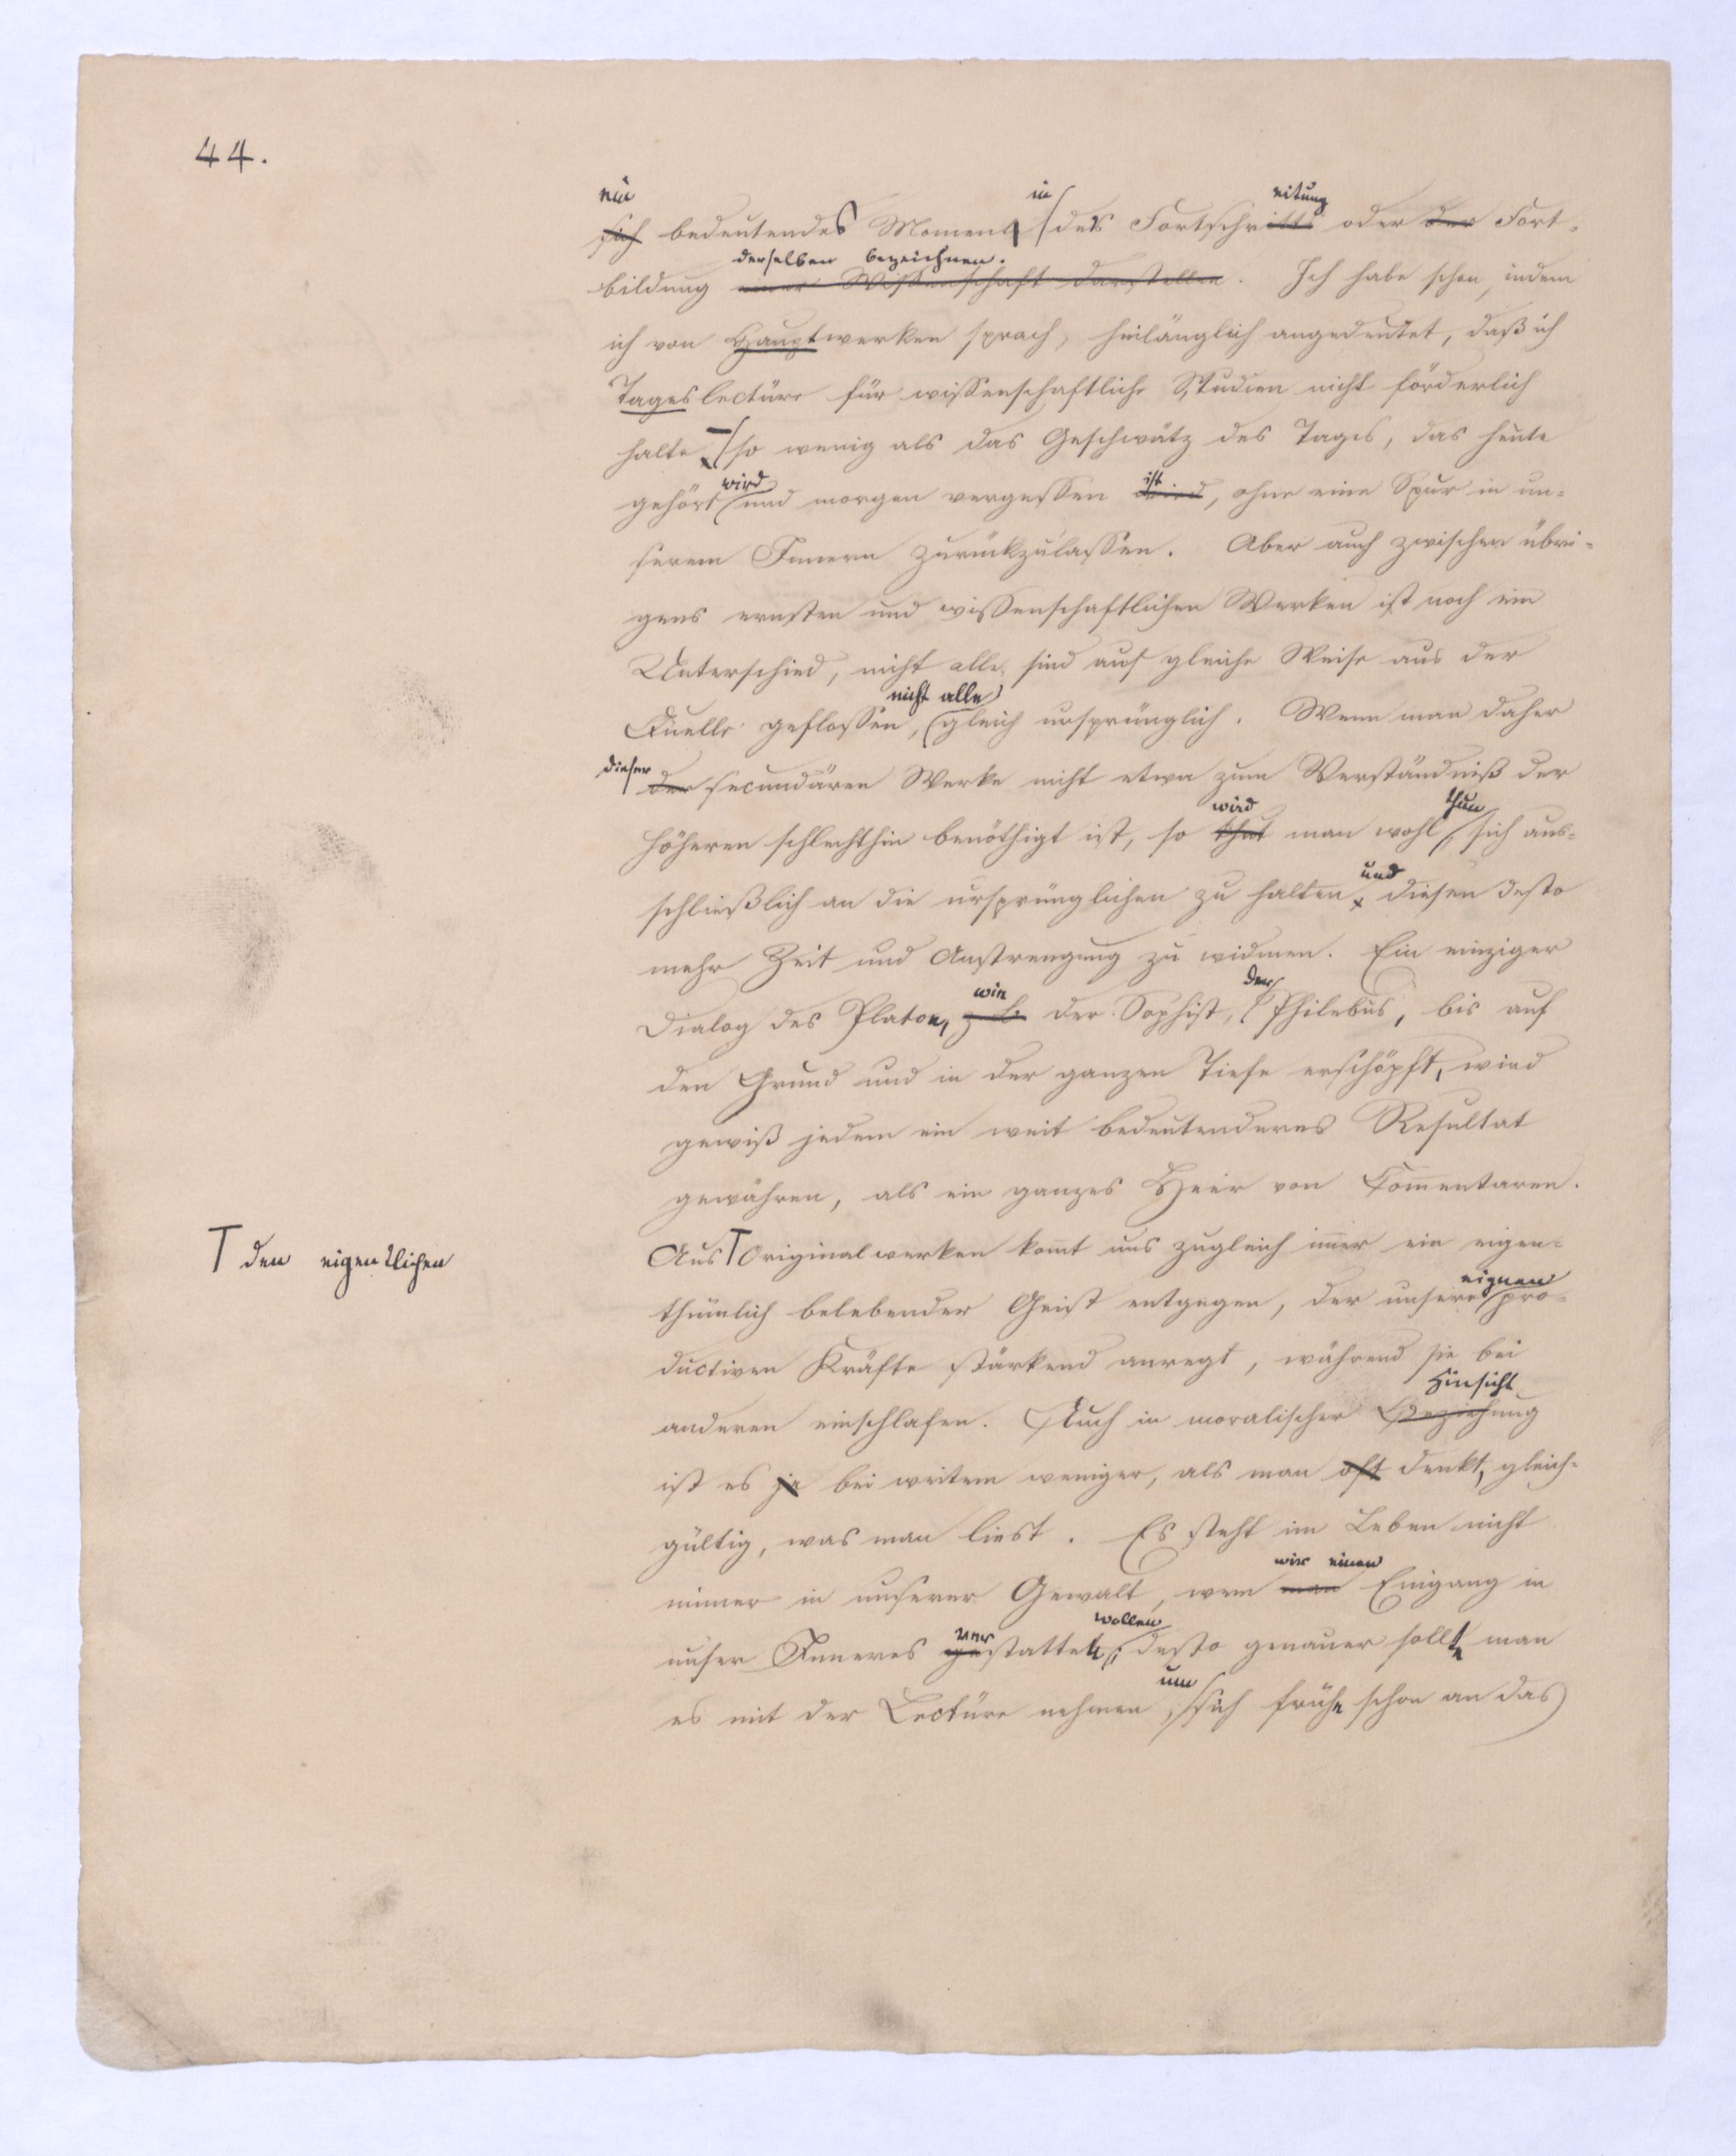 44.
ein
in
eitung
sich bedeutendes Moment des Fortschritts oder der Fort-
derselben bezeichnen.
bildung einer Wissenschaft darstellen. Ich habe schon, indem
ich von Hauptwerken sprach, hinlänglich angedeutet, daß ich
Tageslectüre für wissenschaftliche Studien nicht förderlich
halte – so wenig als das Geschwätz des Tages, das heute
wird
ist
gehört und morgen vergessen wird, ohne eine Spur in un-
serem Innern zurückzulassen. Aber auch zwischen übri-
gens ernsten und wissenschaftlichen Werken ist noch ein
Unterschied, nicht alle sind auf gleiche Weise aus der
nicht alle
Quelle geflossen, gleich ursprünglich. Wenn man daher
dieser
der secundären Werke nicht etwa zum Verständniß der
wird
thun
höheren schlechthin benöthigt ist, so thut man wohl, sich aus-
und
schließlich an die ursprünglichen zu halten, diesen desto
mehr Zeit und Anstrengung zu widmen. Ein einziger
wie
der
Dialog des Platon, z. B. der Sophist, Philebus, bis auf
den Grund und in der ganzen Tiefe erschöpft, wird
gewiß jedem ein weit bedeutenderes Resultat
gewähren, als ein ganzes Heer von Com̄entaren.
T den eigentlichen
Aus T Originalwerken kom̄t uns zugleich im̄er ein eigen-
eignen
thümlich belebender Geist entgegen, der unsere pro-
ductiven Kräfte stärkend anregt, während sie bei
Hinsicht
anderen einschlafen. Auch in moralischer Beziehung
ist es ja bei weitem weniger, als man oft denkt, gleich-
gültig, was man liest. Es steht im Leben nicht
wir einen
immer in unserer Gewalt, wem man Eingang in
ver
wollen
unser Inneres gestatten; desto genauer sollte man
um
es mit der Lectüre nehmen, sich frühe schon an das